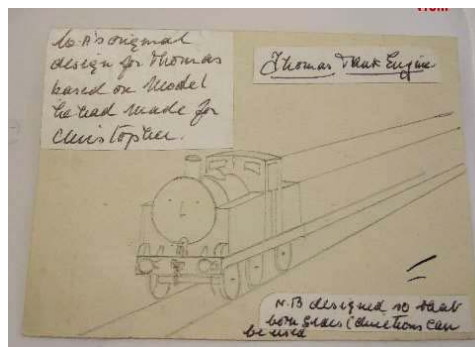 W.A's original
design for Thomas
based on Model
he had made for
Christopher.
Thomas Tank Engine
N.B designed so that
both sides (directions can
be used